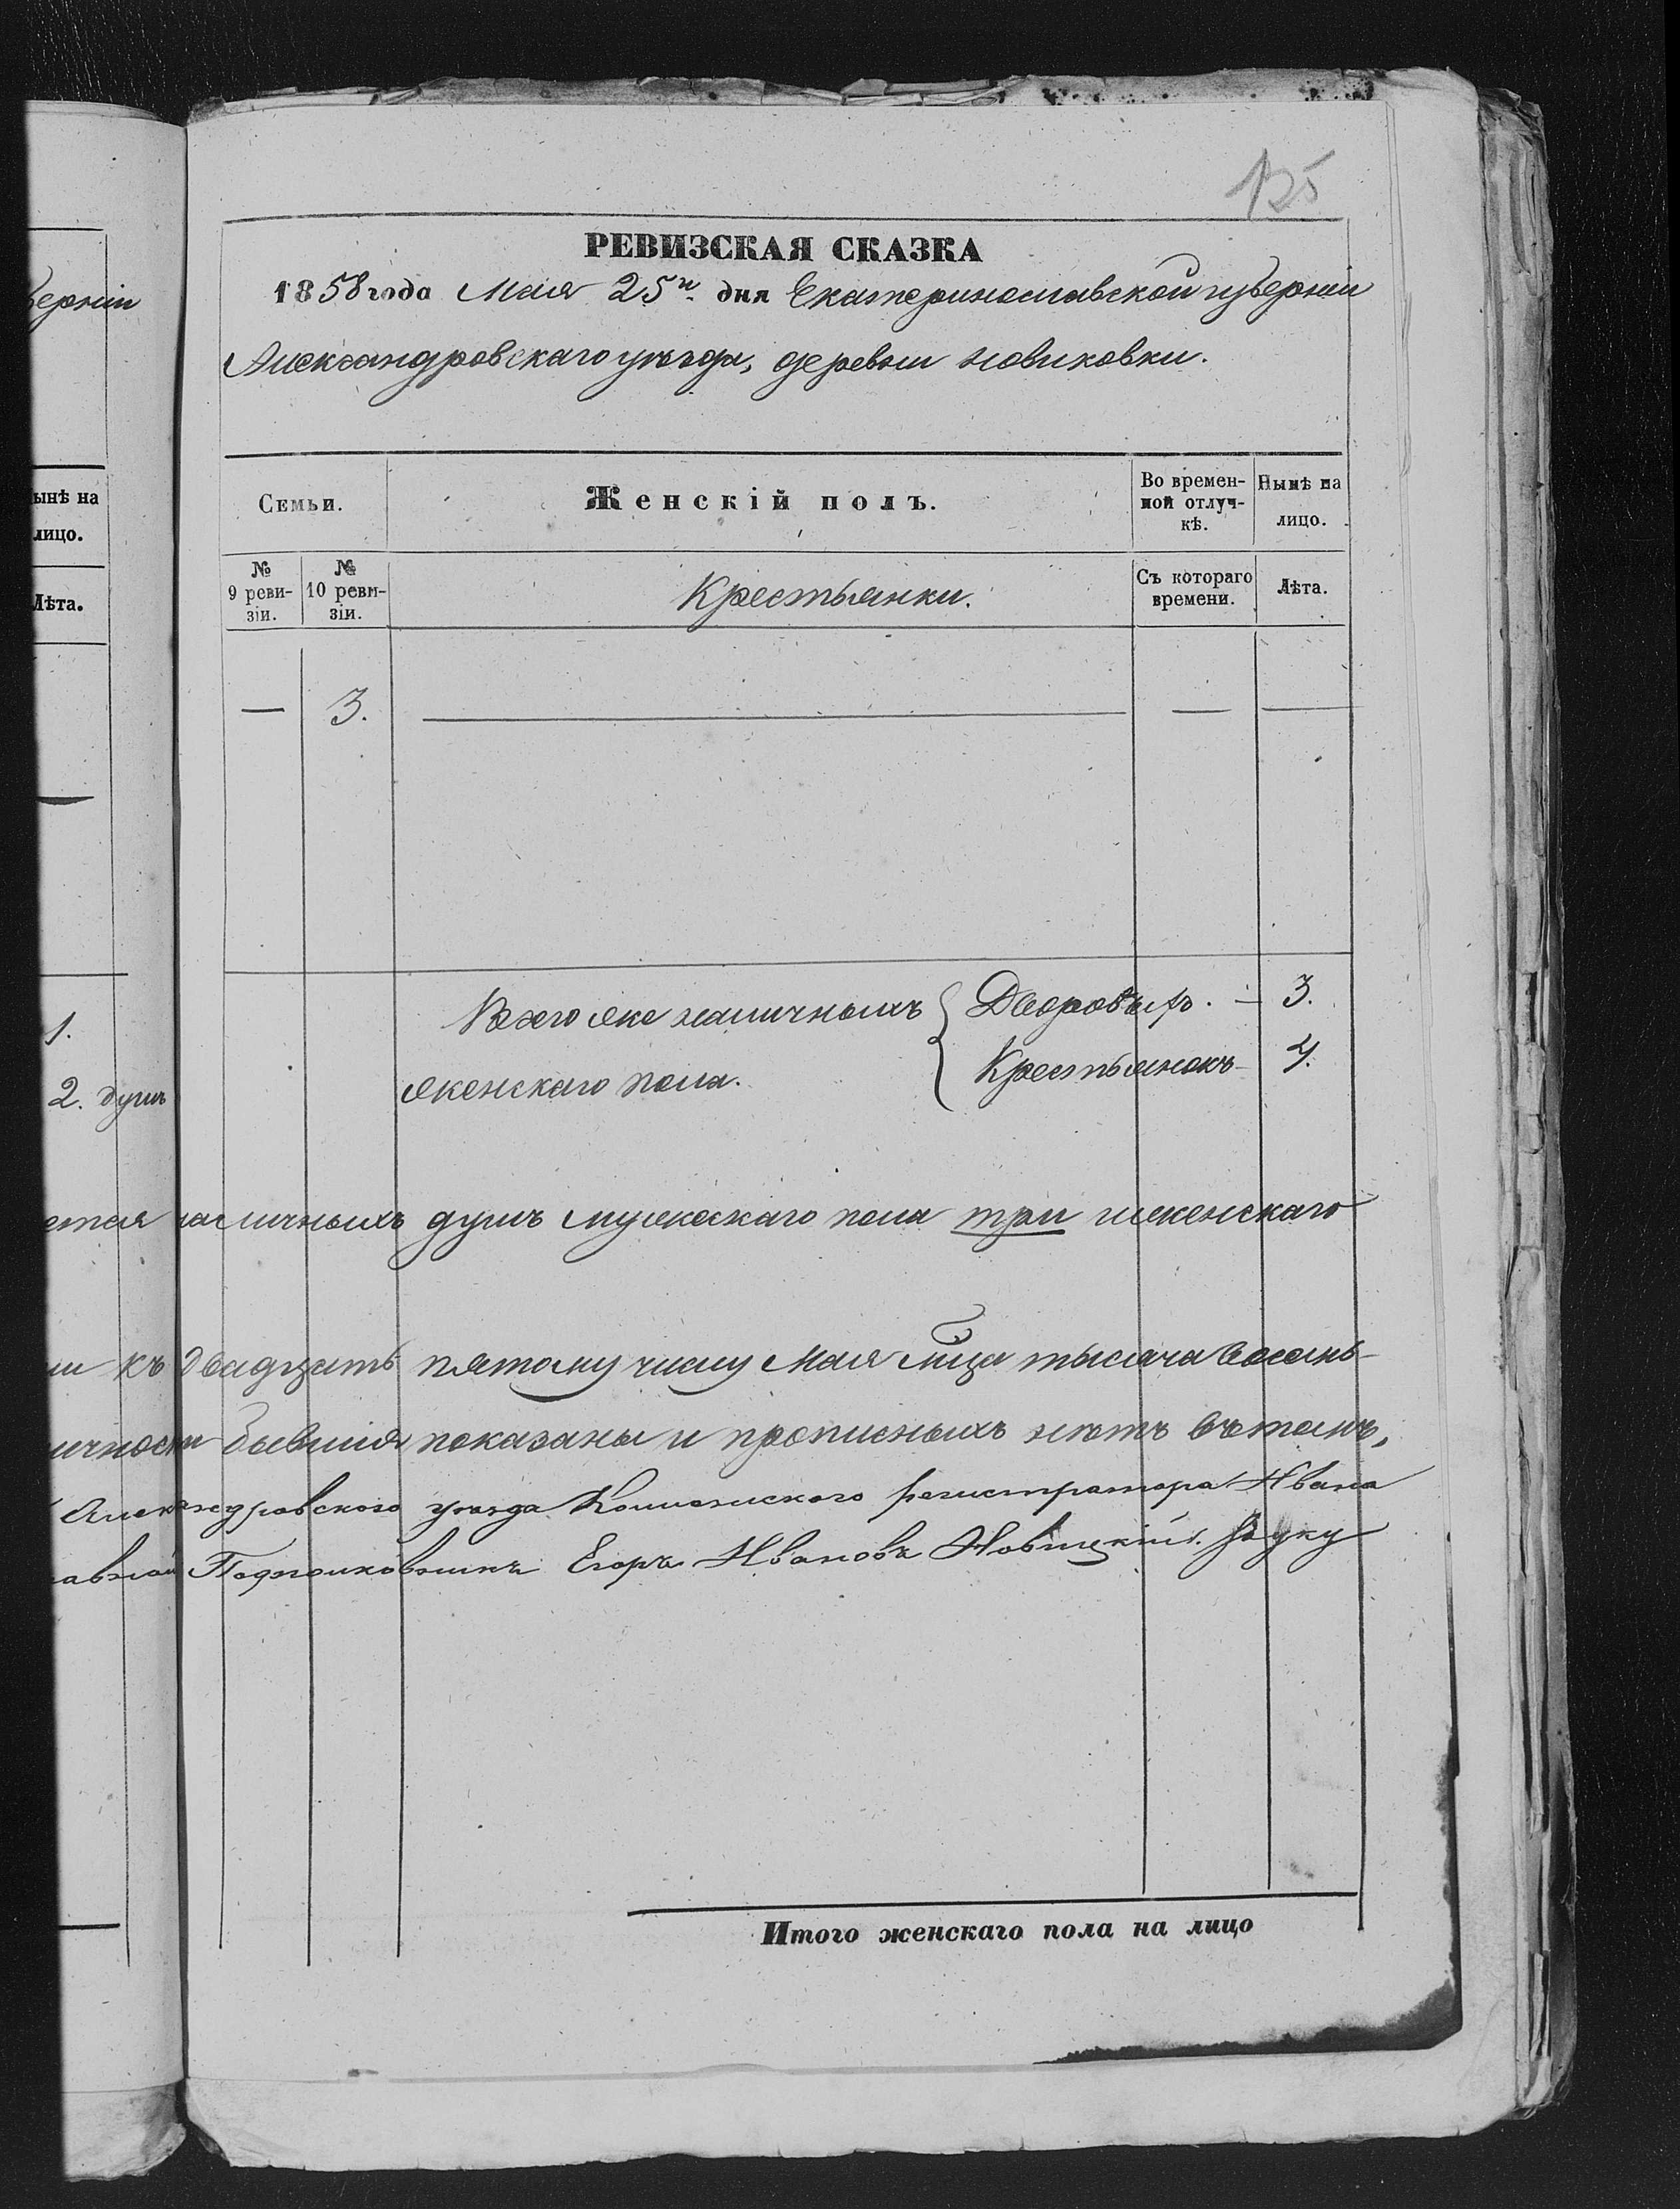 125
РЕВИЗСКАЯ СКАЗКА
1858 года Мая 25го дня Екатеринославской губерніи
Александровскаго уѣзда, деревни Новиковки.
Семьи.
Женскій полъ.
Во времен-
ной отлуч-
кѣ.
Нынѣ на
лицо.
№
9 реви-
зіи.
№
10 реви-
зіи.
Крестьянки.
Съ котораго
времени.
Лѣта.
—
3.
—
—
—
Всего же наличныхъ { Дворовыхъ. — 3.
женскаго пола. Крестьянокъ — 4.
наличныхъ душъ мужескаго пола три и женскаго
къ двадцать пятому числу Мая мца тысяча восемь-
бывшія показаны и прописныхъ нѣтъ въ томъ,
Александровского уезда Коллежского регистратора Ивана
Егоръ Ивановъ Новицкій. За уку
Итого женскаго пола на лицо
берніи
ынѣ на
лицо.
Лѣта.
1.
2. душъ